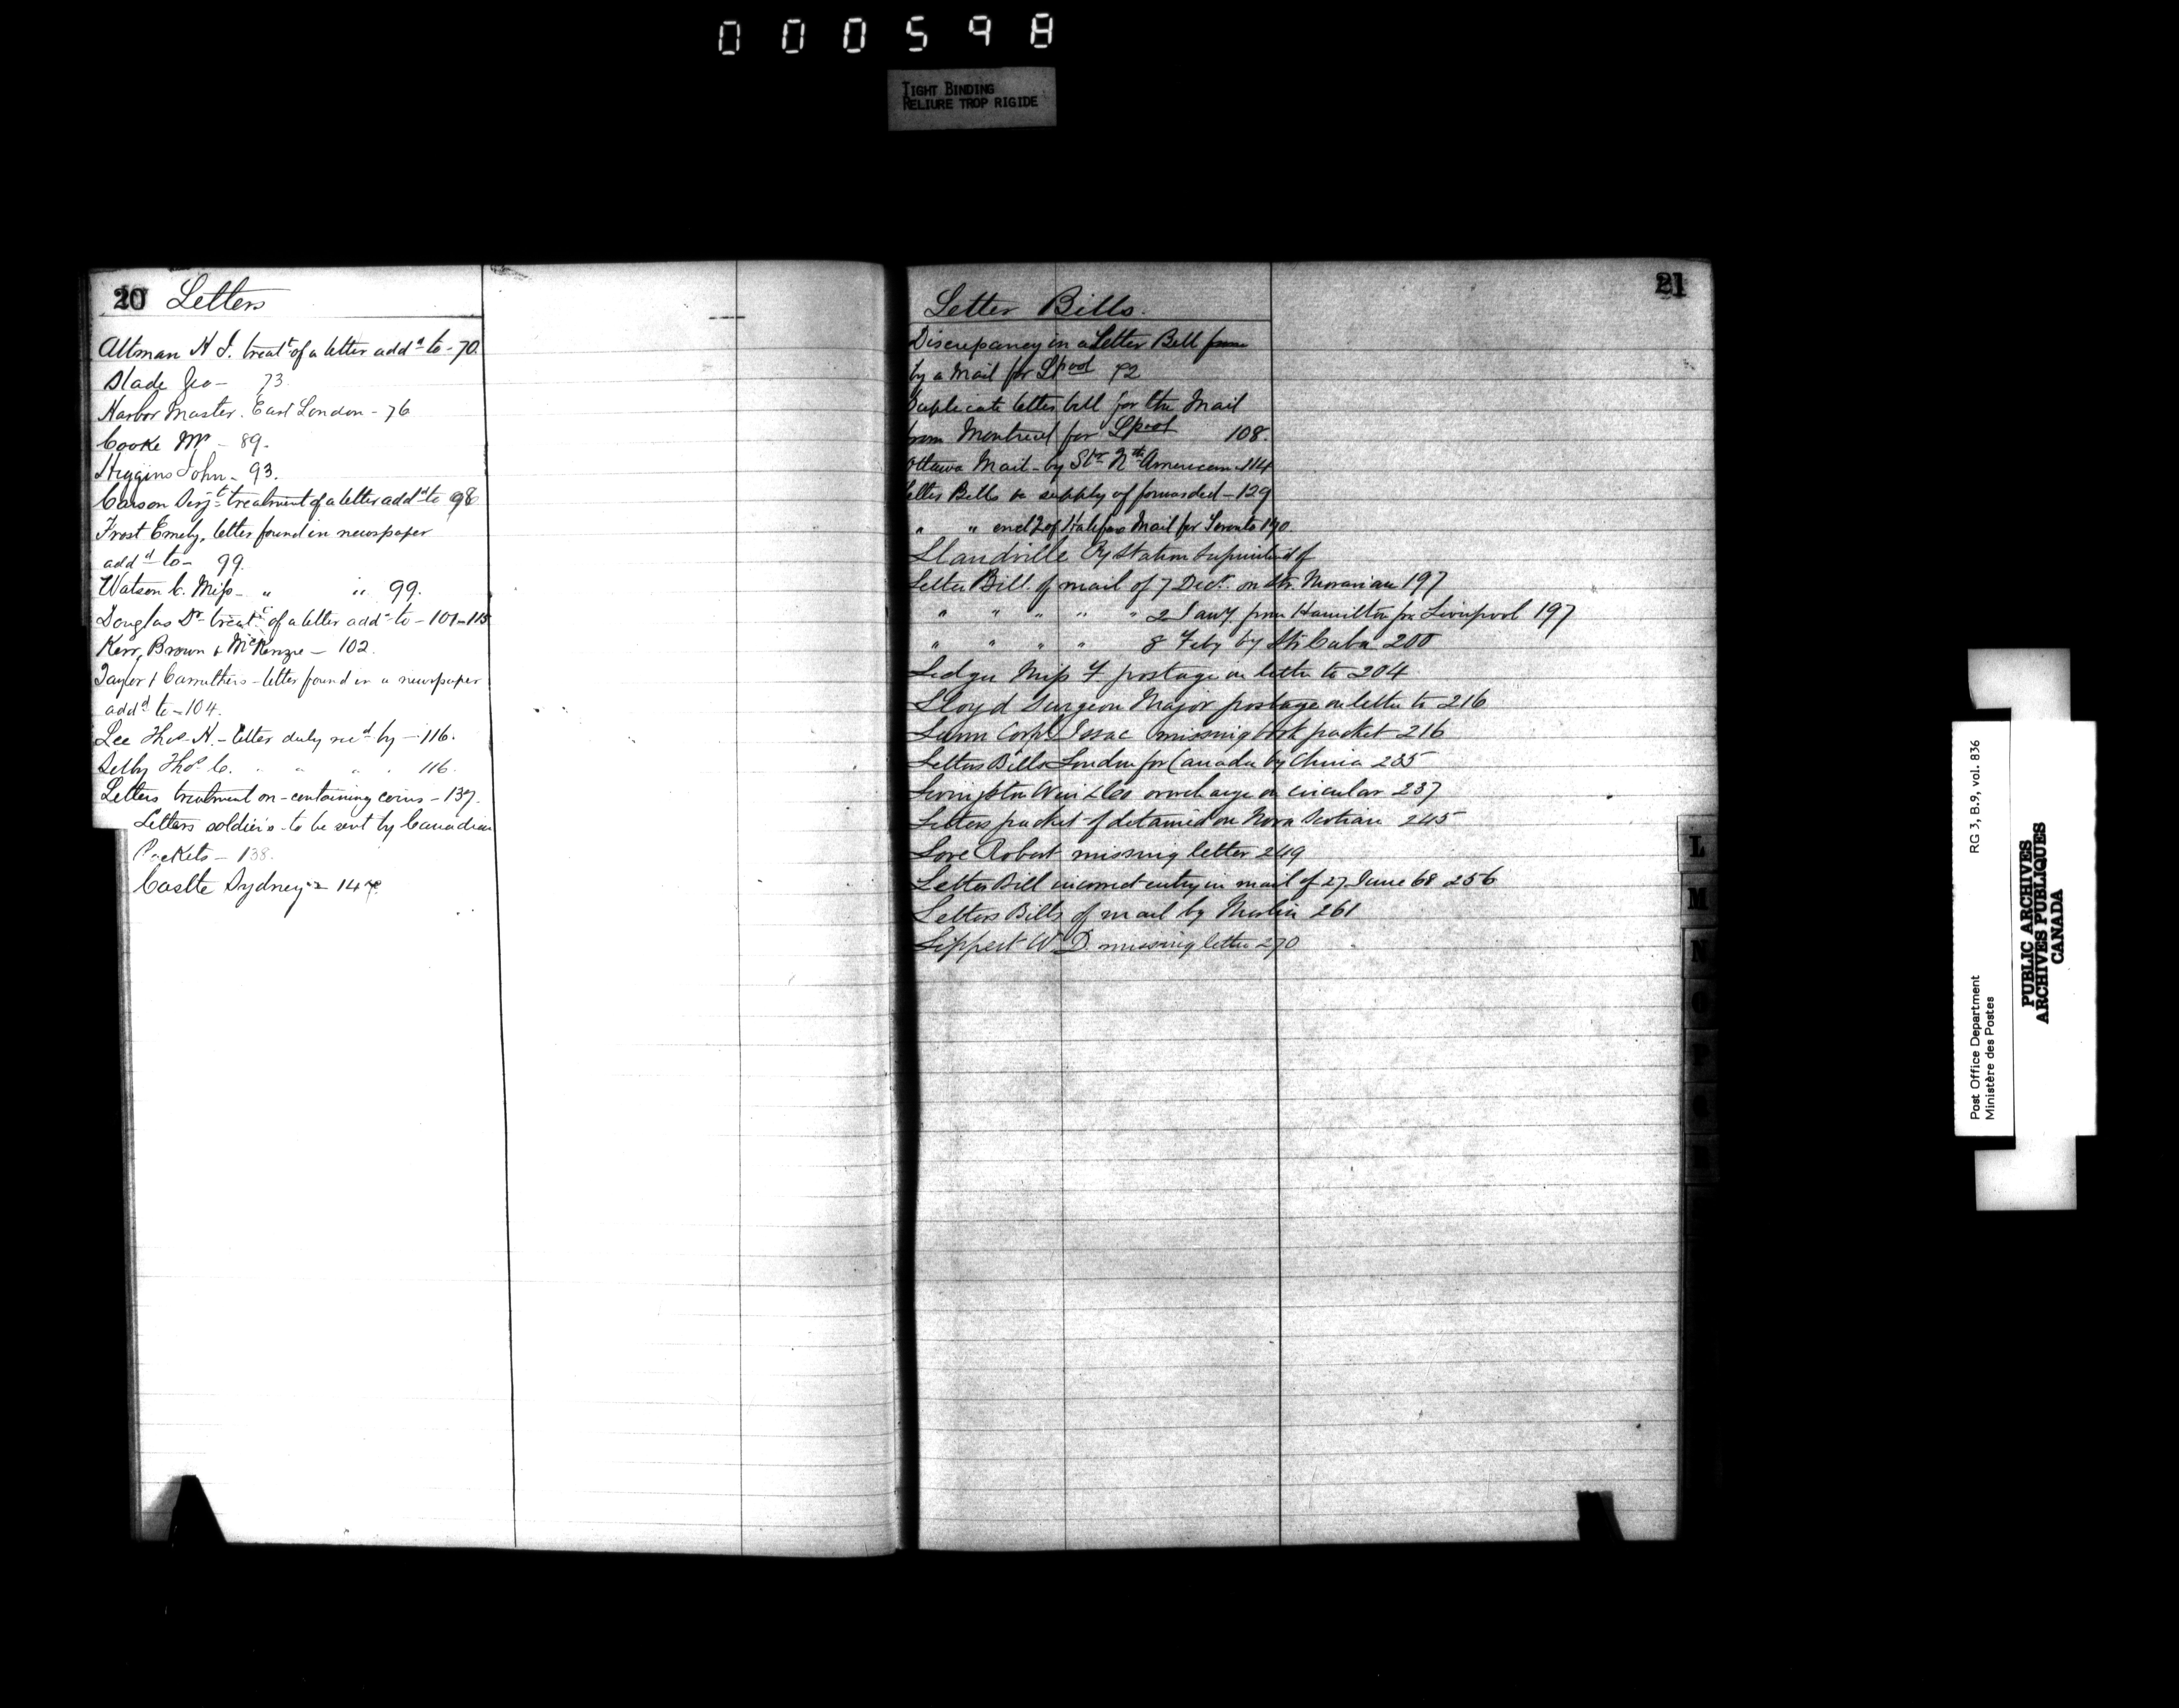 000598
TIGHT BINDING
RELIURE TROP RIGIDE
20 Letters
Altman H J. treatt of a letter addd to - 70.
Slade Geo - 73
Harbor Master. East London - 76
Cooke Mr - 89.
Higgins John - 93.
Carson Serjt treatment of a letter addd to 98
Frost Emely, letter found in newspaper
addd to - 99.
Watson C. Miss - " " 99.
Douglas Dr treatt of a letter addd to - 101-115
Kerr, Brown & McKenzie - 102.
Taylor & Carruthers - letter found in a newspaper
addd to - 104.
Lee Thos. H. - letter duly recd by - 116.
Selby Thos. C. " " " " 116.
Letters treatment on - containing coins - 137.
Letters soldier's - to be sent by Canadian
Packets - 138.
Caslte Sydney - 14
21
Letter Bills.
Discrepancy in a Letter Bill from
by a Mail for Lpool 72
Duplicate letter bill for the Mail
from Montreal for Lpool 108.
Ottawa Mail - by Str Nth American - 114
Letter Bills a supply of forwarded - 129
" " end 2 of Halifax Mail for Toronto 190.
Llandville Ry Station of
Letter Bill of mail of 7 Decr. on Str. Moravian 197
" " " " " 2 Jany. from Hamilton for Liverpool 197
" " " " 8 Feby by Str Cuba 200
Ledger Miss F. postage on letter to 204
Lloyd Surgeon Major postage on letter to 216
Lunn Corpl Issac missing book packet 216
Letters Bills London for Canada by China 235
Livingston & Co overcharge on circular 237
Letters packet of detained on Nova Scotian 245
Love Robert missing letter 249
Letter Bill incorrect entry in mail of 27 June 68 256
Letters Bills of mail by Merlin 261
Lippert W. D. missing letter 270
L
M
N
O
P
Post Office Department
Ministère des Postes
RG 3, B.9, vol. 836
PUBLIC ARCHIVES
ARCHIVES PUBLIQUES
CANADA